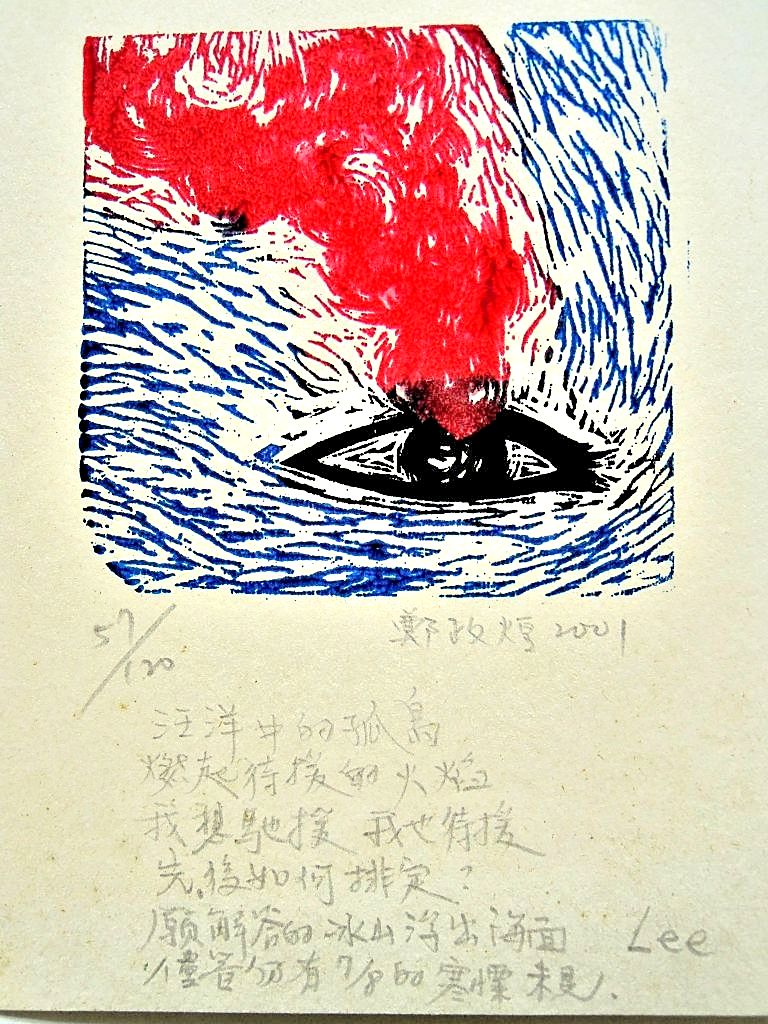 57/120
鄭政煌 2001
汪洋中的孤島
燃起待援的火焰
我想馳援 我也待援
先、後如何排定？
願解答的冰山浮出海面 Lee
僅管仍有7/8的寒慄未見.